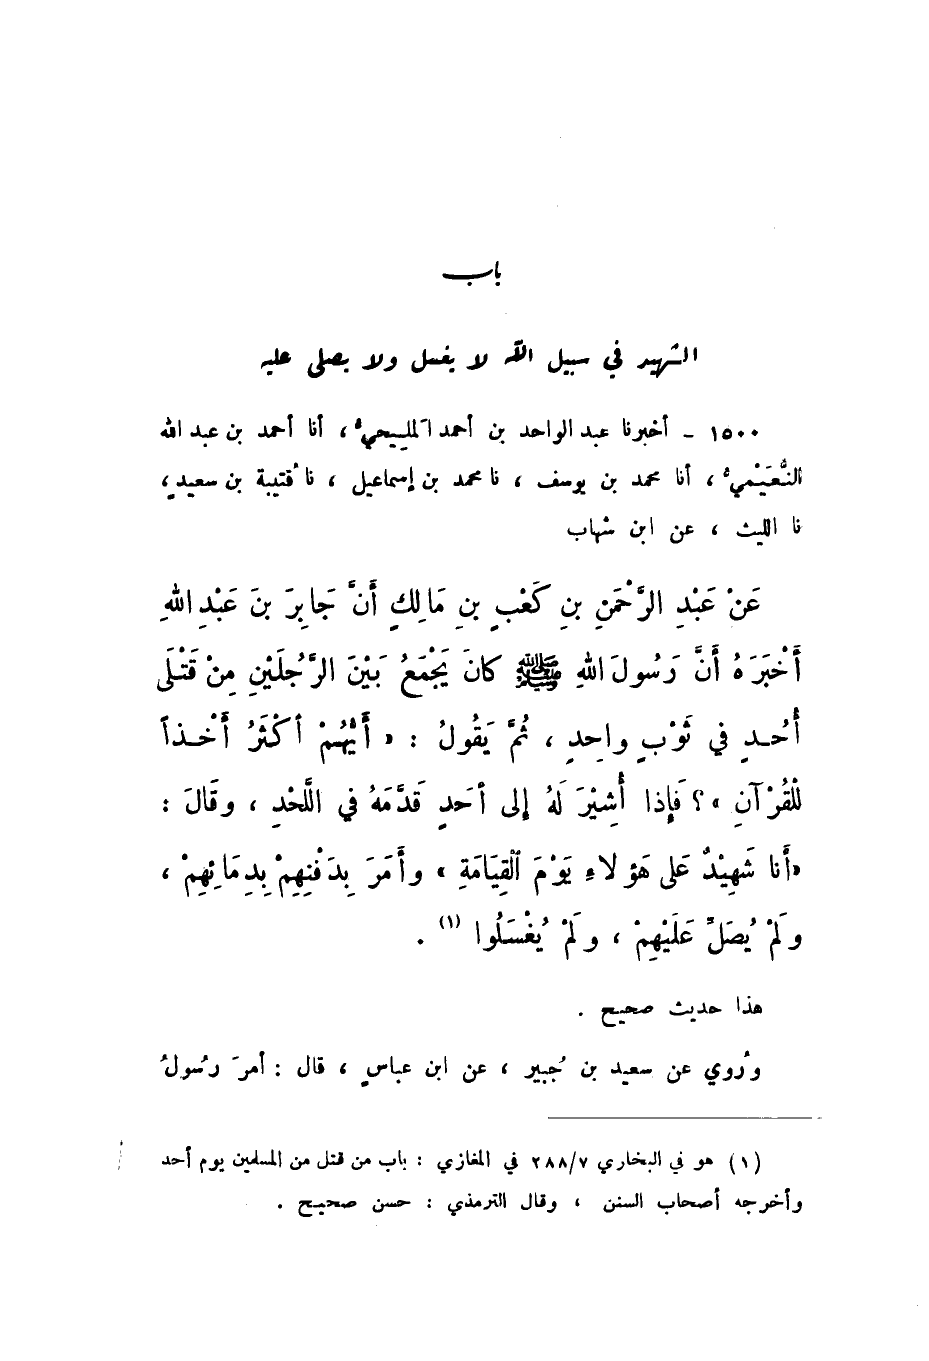 باب
الشهيد في سبيل الله لا يغسل ولا يصلى عليه
١٥٠٠ - أخبرنا عبد الواحد بن أحمد المليحيُّ ، أنا أحمد بن عبد الله
النُّعَيْميُّ ، أنا محمد بن يوسف ، نا محمد بن إسماعيل ، نا قُتيبة بن سعيدٍ ،
نا الليث ، عن ابن شهاب
عَنْ عَبْدِ الرَّحْمَنِ بنِ كَعْبٍ بنِ مَالِكٍ أَنَّ جَابِرَ بنَ عَبْدِ اللهِ
أَخْبَرَهُ أَنَّ رَسُولَ اللهِ ﷺ كانَ يَجْمَعُ بَيْنَ الرَّجُلَيْنِ مِنْ قَتْلَى
أُحُدٍ في ثَوْبٍ واحِدٍ ، ثُمَّ يَقُولُ : « أَيُّهُمْ أكْثَرُ أَخْذاً
لِلْقُرْآنِ » ؟ فَإِذا أُشِيْرَ لَهُ إلى أحَدٍ قَدَّمَهُ في اللَّحْدِ ، وقَالَ :
« أَنا شَهِيْدٌ عَلى هَؤلاءِ يَوْمَ الْقِيَامَةِ » وأَمَرَ بِدَفْنِهِمْ بِدِمَائِهِمْ ،
ولَمْ يُصَلِّ عَلَيْهِمْ ، ولَمْ يُغْسَلُوا (١) .
هذا حديث صحيح .
ورُوي عن سعيد بن جُبير ، عن ابن عباسٍ ، قال : أمرَ رسُولُ
(١) هو في البخاري ٢٨٨/٧ في المغازي : باب من قتل من المسلمين يوم أحد
وأخرجه أصحاب السنن ، وقال الترمذي : حسن صحيح .